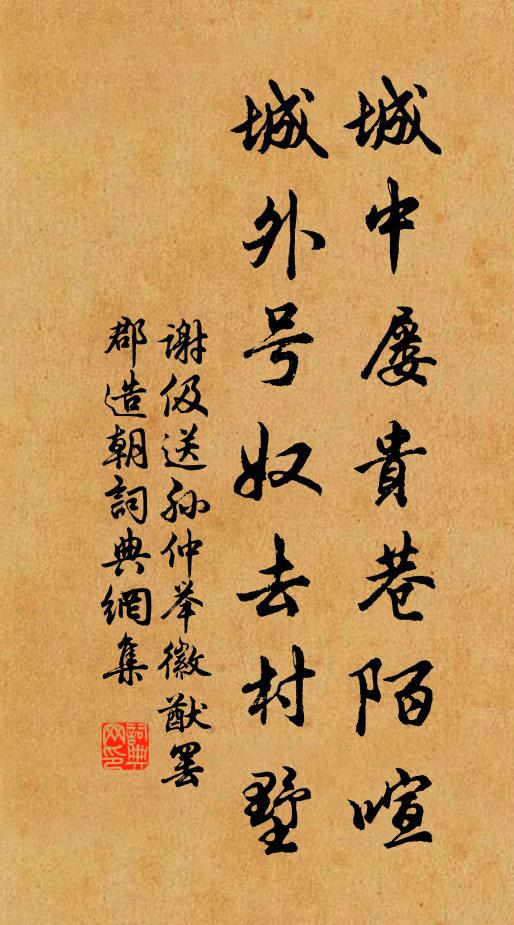 城中屡貴巷陌喧
城外号奴去村墅
谢伋送孙仲举徽猷罢
郡造朝詞典網集
詞典网印